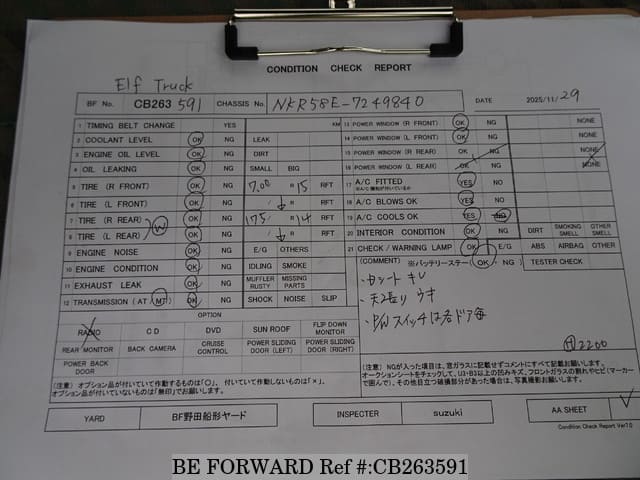 CONDITION CHECK REPORT
Elf Truck
BF No. CB263 591 CHASSIS No. NKR58E-7249840 DATE 2025/11/29
1 TIMING BELT CHANGE YES KM
2 COOLANT LEVEL OK NG LEAK
3 ENGINE OIL LEVEL OK NG DIRT
4 OIL LEAKING OK NG SMALL BIG
5 TIRE (R FRONT) OK NG 7.00 R 15 RFT
6 TIRE (L FRONT) OK NG ↓ R RFT
7 TIRE (R REAR) W OK NG 175/ R 14 RFT
8 TIRE (L REAR) OK NG ↓ R RFT
9 ENGINE NOISE OK NG E/G OTHERS
10 ENGINE CONDITION OK NG IDLING SMOKE
11 EXHAUST LEAK OK NG MUFFLER RUSTY MISSING PARTS
12 TRANSMISSION (AT / MT) OK NG SHOCK NOISE SLIP
OPTION
RADIO CD DVD SUN ROOF FLIP DOWN MONITOR
REAR MONITOR BACK CAMERA CRUISE CONTROL POWER SLIDING DOOR (LEFT) POWER SLIDING DOOR (RIGHT)
POWER BACK DOOR
(注意) オプション品が付いていて作動するものは「○」、付いていて作動しないものは「×」、
オプション品が付いていないものは「無印」でお願いします。
13 POWER WINDOW (R FRONT) OK NG NONE
14 POWER WINDOW (L FRONT) OK NG NONE
15 POWER WINDOW (R REAR) OK NG NONE
16 POWER WINDOW (L REAR) OK NG NONE
17 A/C FITTED YES NO
18 A/C BLOWS OK YES NO
19 A/C COOLS OK YES NG
20 INTERIOR CONDITION OK NG DIRT SMOKING SMELL OTHER SMELL
21 CHECK / WARNING LAMP OK E/G ABS AIRBAG OTHER
(COMMENT) ※バッテリーステー( OK ・ NG ) TESTER CHECK
・シート キレ
・天張り ウキ
・P/Wスイッチは右ドア毎
H 2200
(注意) NGが入った項目は、窓ガラスに記載せずコメントにすべて記載お願いします。
オークションシートをチェックして、U3・B3以上の凹みキズ、フロントガラスの割れやヒビ(マーカー
で囲んで)、その他目立つ破損部分があった場合は、写真撮影お願いします。
YARD BF野田船形ヤード INSPECTER suzuki AA SHEET ✓
Condition Check Report Ver7.0
BE FORWARD Ref #:CB263591